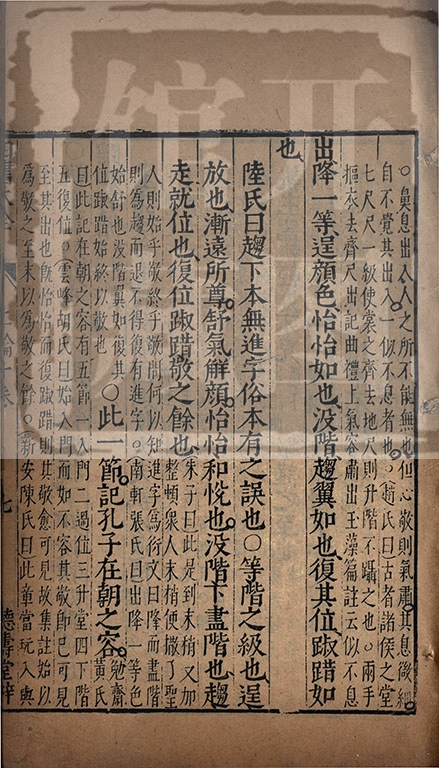 ○鼻息出入人之所不能無也但心敬則氣肅其息微細
自不覺其出入一似不息者也○趙氏曰古者諸侯之堂
七尺尺一級使裳之齊去地尺則升階不躡之也○兩手
摳衣去齊尺出記曲禮上氣容肅出玉藻篇註云似不息
出降一等逞顏色怡怡如也沒階趨翼如也復其位踧踖如
也
陸氏曰趨下本無進字俗本有之誤也○等階之級也逞
放也漸遠所尊舒氣解顏怡怡和悅也沒階下盡階也趨
走就位也復位踧踖敬之餘也
朱子曰此是到末稍又加
整頓衆人末梢便撒了聖
人則始乎敬終乎敬何以知進字為衍文曰降而盡階
則為趨而退不得復有進字○南軒張氏曰出降一等色
始舒也沒階翼如復其
位踧踖始終以敬也
○此一節記孔子在朝之容
勉齋
黃氏
曰此記在朝之容有五節一入門二過位三升堂四下階
五復位○雲峰胡氏曰始入門而如不容其敬即已可見
至其出也旣怡怡而復踧踖則其敬愈可見故集註始以
為敬之至末以為敬之餘○新安陳氏曰此章當玩入與
七
德壽堂梓